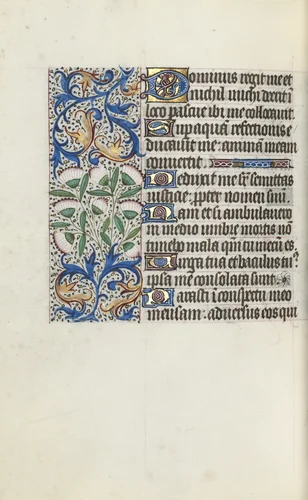 Dominus regit me et
nichil michi deerit i
loco pascue ibi me collocavit
Sup aquā refectionis e
ducavit me : animam meam
convertit
Deduxit me sr semitas
iusticie : ppter nomen suū
Nam et si ambulavero
in medio umbre mortis no
timebo mala qm̄ tu mecū es
Virga tua et baculus tuꝰ
ipsa me consolata sunt
Parasti i conspectu meo
mensam : adversus eos qui